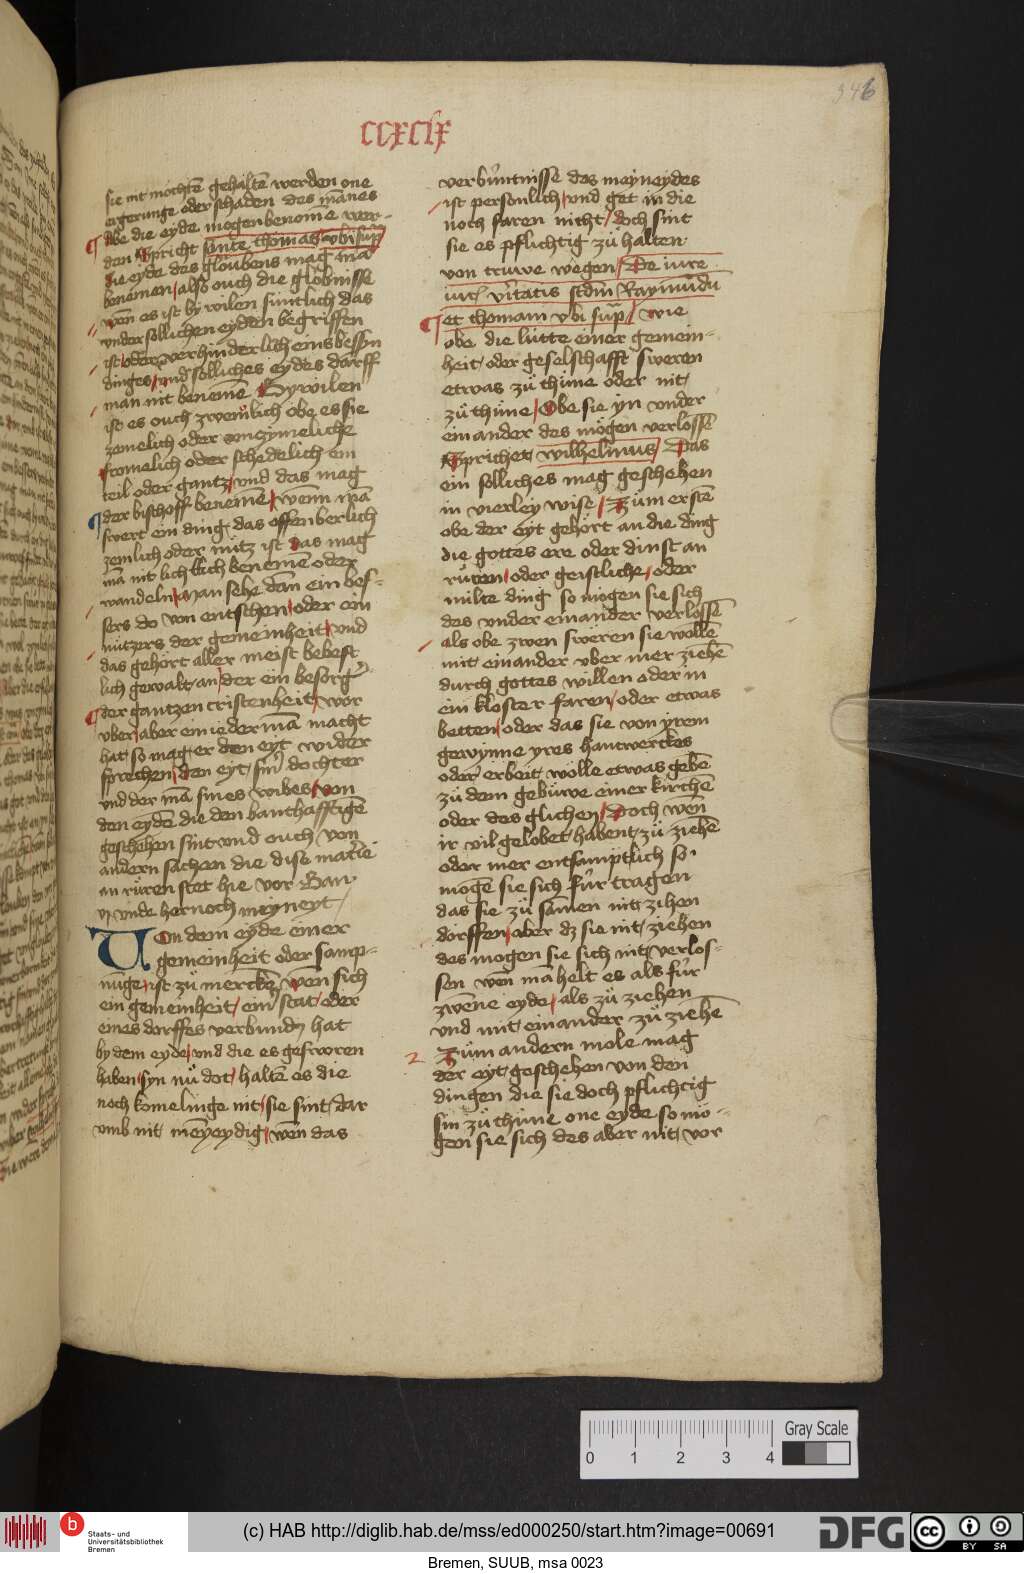 346
ccxcix
sie nit möchtē gehaltē werden one
ergerunge oder schaden des mānes
Abe die eyde mogen benomē wer-
den Spricht sante thomas vbi sup̄
die eyde des gloubens mag mā
benemen also ouch die globnisse
wen es ist by wilen sūntlich das
vnder sollichen eyden begriffen
ist oder verhinderlich eins bessn̄
dinges vnd solliches eydes darff
man nit benemē Bywilen
ist es ouch zweiuelich obe es sie
zemelich oder vnzymeliche
fromelich oder schedelich ein
teil oder gantz vnd das mag
der bischoff benemē wenn mā
swert ein ding das offenberlich
zemlich oder nütz ist das mag
mā nit benemē oder
wandeln Man sehe dan ein bes-
sers do von entschen oder ein
nützers der gemeinheit vnd
das gehört aller meist bebest
lich gewalt an der ein besorḡ
der gantzen cristenheit vor
vber aber ein iederman macht
hat so mag er den eyt wider
sprechen den eyt sin̄ dochter
vnd der mā sines wibes von
den eydē die den banthafftigē
geschehen sint vnd ouch von
andern sachen die dise mat̄ie
an rüren stet hie vor Ban
vj vnde hernoch meyneyt
Von dem eyde einer
gemeinheit oder samp-
nūge ist zü merckē wen sich
ein gemeinheit ein stat oder
eines dorffes verbunden hat
by dem eyde vnd die es gesworen
haben syn nü dot haltē es die
noch komelinge nit sie sint dar
vmb nit mēyeydig wen das
verbūntnisse des meyneydes
ist personlich vnd get in die
noch faren nicht doch sint
sie es pflichtig zü halten
von truwe wegen De iure
iur̄ v̄itatis scdm̄ Raymūdū
et thomam vbi sup̄ wie
obe die lütte einer gemein-
heit oder geselschafft sweren
etwas zü thüne oder nit
zü thüne Obe sie yn vnder
einander des mögen verlossē
Sprichet wilhelmus Das
ein solliches mag geschehen
in vierley wise Züm erstē
obe der eyt gehört an die ding
die gottes ere oder dinst an
rüren oder geistliche oder
milte ding so mögen sie sich
des vnder einander verlossē
als obe zwen sweren sie wöllē
mit einander vber mer ziehē
durch gottes willen oder in
ein kloster faren oder etwas
betten oder das sie von yrem
gewynne yres hantwerckes
oder erbeit wölle etwas gebē
zü dem gebüwe einer kirchē
oder des glichen Doch wen
ir vil gelobet habent zü ziehē
oder mer entsamptlich so
mogē sie sich für tragen
das sie zü samen nit zihen
dörffen aber dz sie nit ziehen
des mogen sie sich nit verlos-
sen wen mā helt es als für
zwene eyde als zü ziehen
vnd mit einander zü ziehē
2 Züm andern mole mag
der eyt geschehen von den
dingen die sie doch pflichtig
sin zü thüne one eyde so mö-
gen sie sich des aber nit vor
Gray Scale
0 1 2 3 4
b Staats- und
Universitätsbibliothek
Bremen
(c) HAB http://diglib.hab.de/mss/ed000250/start.htm?image=00691
DFG
cc BY SA
Bremen, SUUB, msa 0023